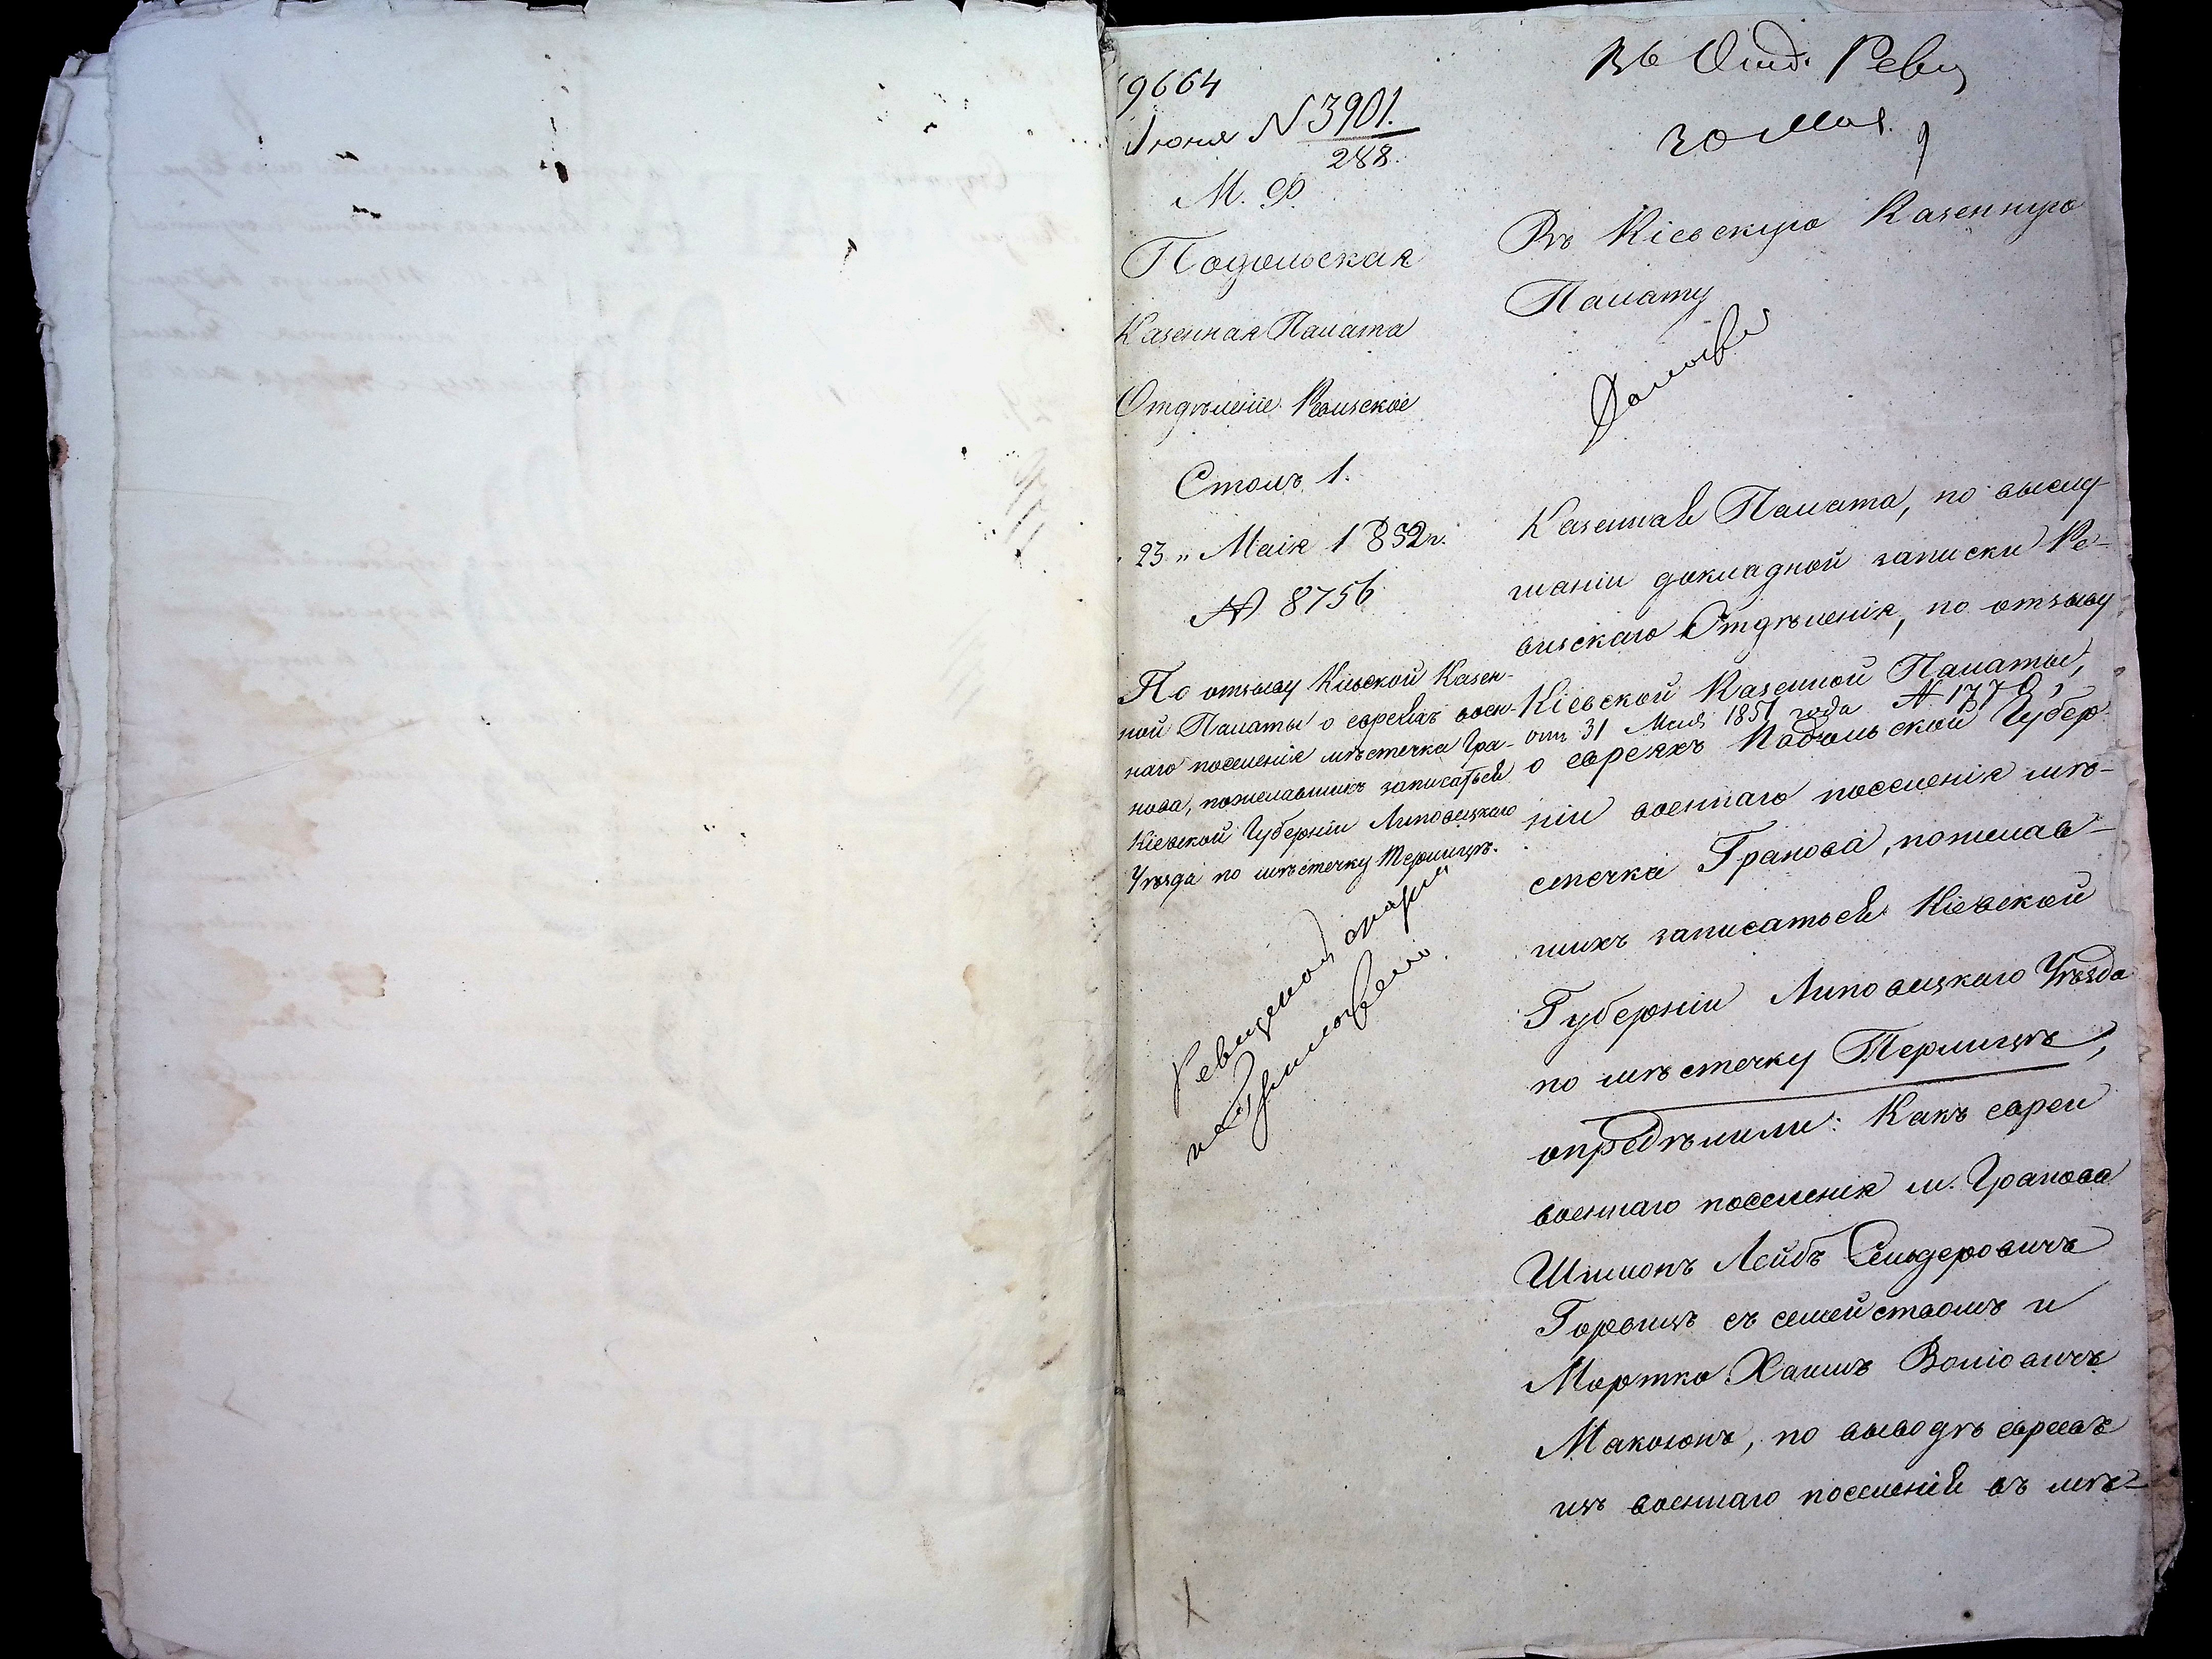 9664
Іюня N 3901.
288.
М. Ф.
Подольская
Казенная Палата
Отдѣленіе Ревизское
Столъ 1.
23 „ Маія 1852 г.
№ 8756
По отзыву Кіевской Казен-
ной Палаты о евреяхъ воен-
наго поселенія мѣстечка Гра-
нова, пожелавшихъ записаться
Кіевской Губерніи Липовецкаго
Уѣзда по мѣстечку Терлицѣ.
Въ Отд. Ревиз
30 Мая
Въ Кіевскую Казенную
Палату
Казенная Палата, по выслу-
шаніи докладной записки Ре-
визскаго Отдѣленія, по отзыву
Кіевской Казенной Палаты,
отъ 31 Мая 1851 года № 1770,
о евреяхъ Подольской Губер-
ніи военнаго поселенія мѣ-
стечка Гранова, пожелав-
шихъ записаться Кіевской
Губерніи Липовецкаго Уѣзда
по мѣстечку Терлицѣ,
опредѣлили: Какъ евреи
военнаго поселенія м. Гранова
Шлиомъ Лейбъ Сендеровичъ
Горвицъ съ семействомъ и
Мортко Хаимъ Воліовичъ
Макогонъ, по выводѣ евреевъ
изъ военнаго поселенія въ мѣ-